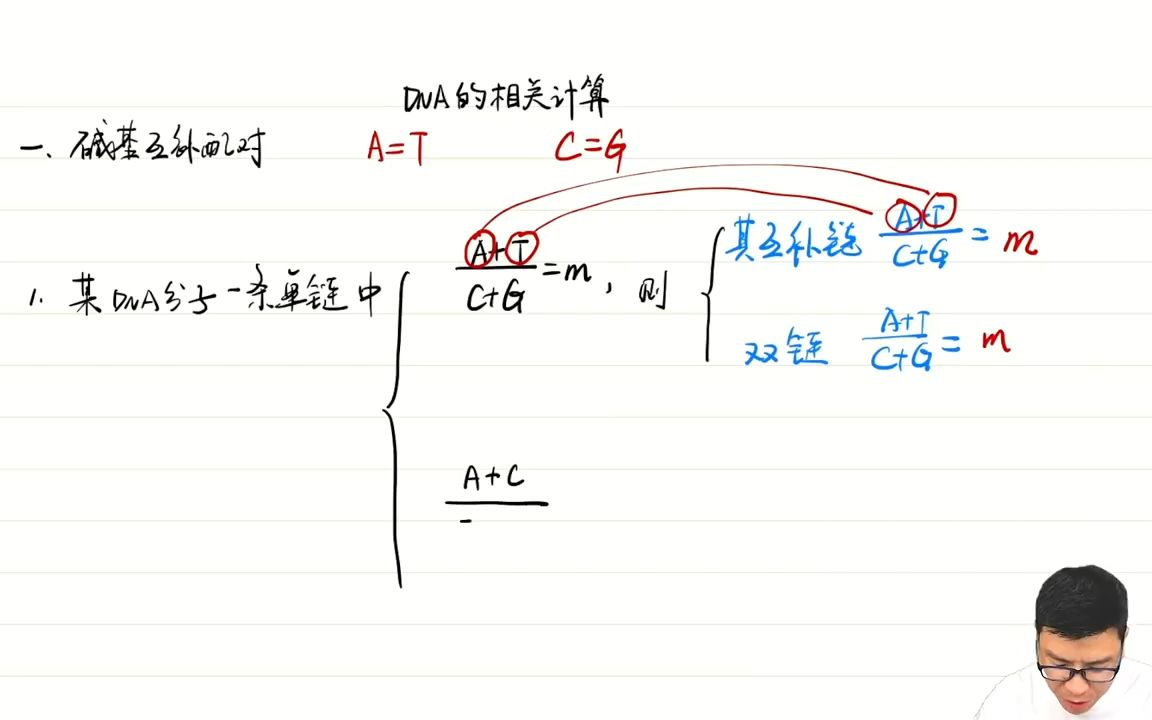 DNA的相关计算
一、碱基互补配对 A=T C=G
1. 某DNA分子一条单链中
A+T/C+G=m，则
其互补链 A+T/C+G=m
双链 A+T/C+G=m
A+C